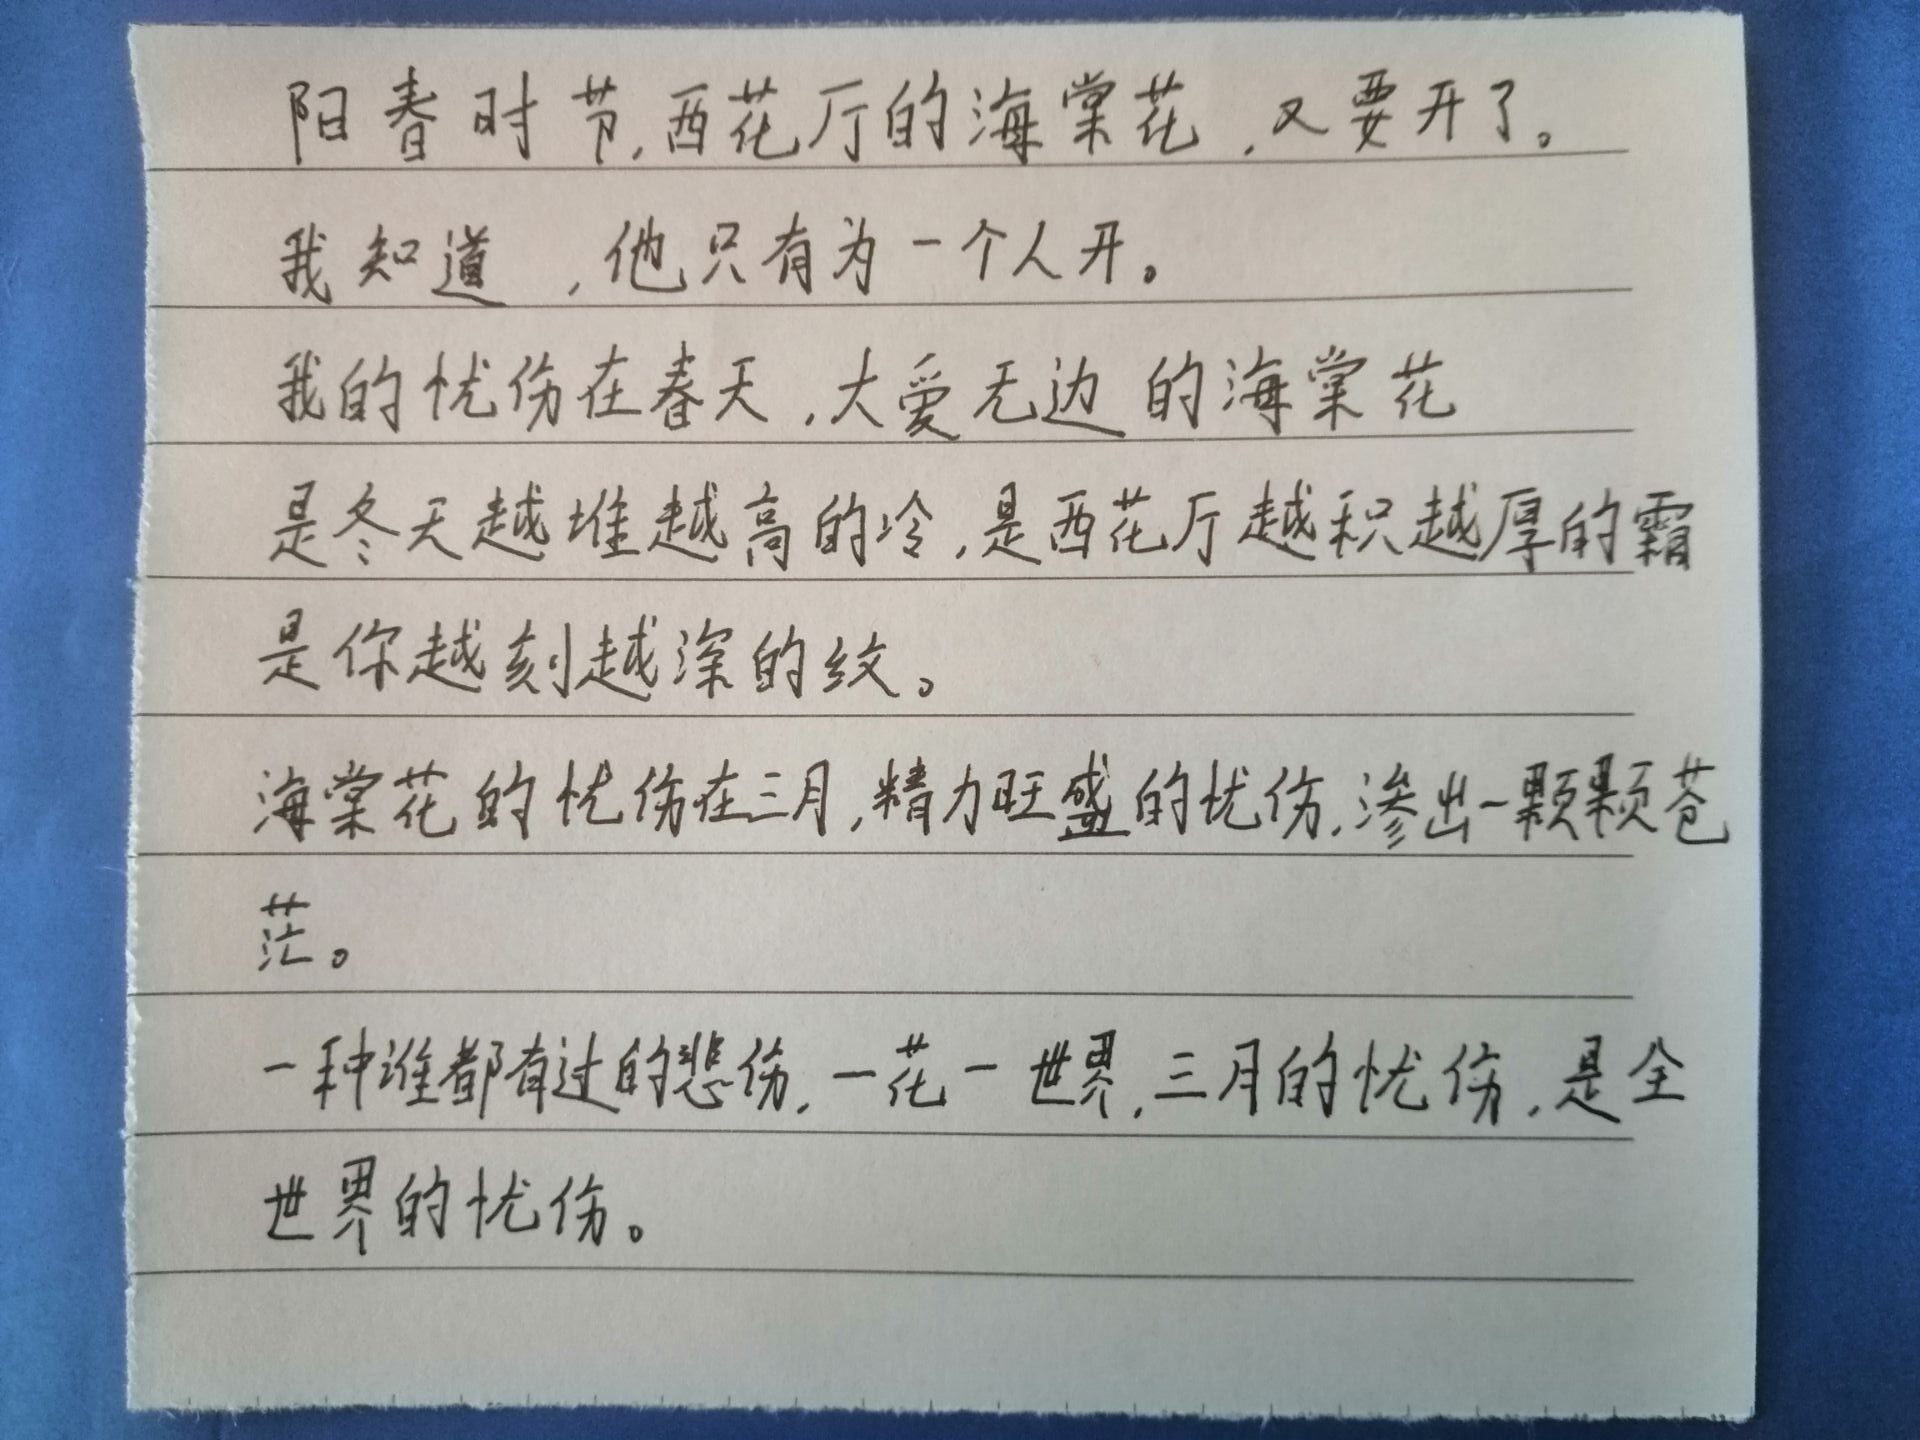 阳春时节,西花厅的海棠花,又要开了。
我知道,他只有为一个人开。
我的忧伤在春天,大爱无边的海棠花
是冬天越堆越高的冷,是西花厅越积越厚的霜
是你越刻越深的纹。
海棠花的忧伤在三月,精力旺盛的忧伤,渗出一颗颗苍
茫。
一种谁都有过的悲伤,一花一世界,三月的忧伤,是全
世界的忧伤。